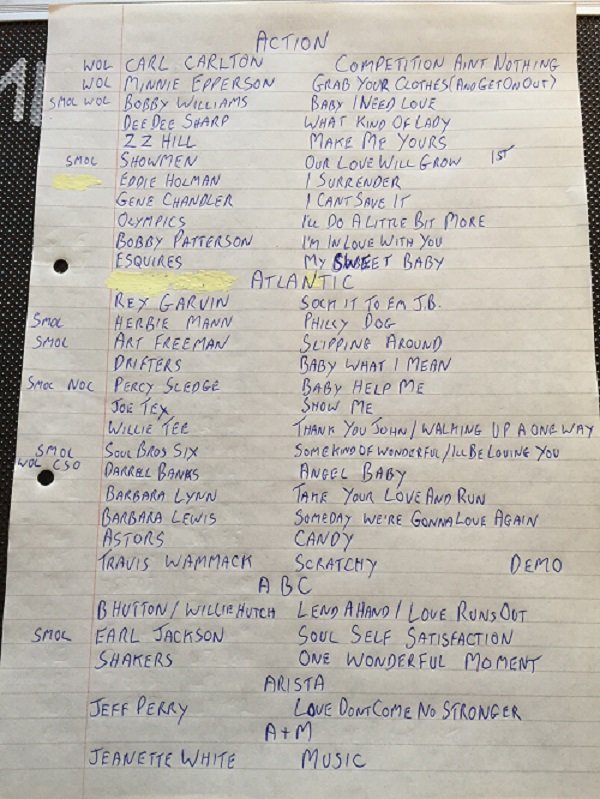 ACTION
WOL CARL CARLTON COMPETITION AINT NOTHING
WOL MINNIE EPPERSON GRAB YOUR CLOTHES (AND GET ON OUT)
SMOL WOL BOBBY WILLIAMS BABY I NEED LOVE
DEE DEE SHARP WHAT KIND OF LADY
ZZ HILL MAKE ME YOURS
SMOL SHOWMEN OUR LOVE WILL GROW 1ST
EDDIE HOLMAN I SURRENDER
GENE CHANDLER I CANT SAVE IT
OLYMPICS I'LL DO A LITTLE BIT MORE
BOBBY PATTERSON I'M IN LOVE WITH YOU
ESQUIRES MY SWEET BABY
ATLANTIC
REX GARVIN SOCK IT TO EM J.B.
SMOL HERBIE MANN PHILLY DOG
SMOL ART FREEMAN SLIPPING AROUND
DRIFTERS BABY WHAT I MEAN
SMOL NOL PERCY SLEDGE BABY HELP ME
JOE TEX SHOW ME
WILLIE TEE THANK YOU JOHN / WALKING UP A ONE WAY
SMOL SOUL BROS SIX SOME KIND OF WONDERFUL / I'LL BE LOVING YOU
WOL CSO DARRELL BANKS ANGEL BABY
BARBARA LYNN TAKE YOUR LOVE AND RUN
BARBARA LEWIS SOMEDAY WE'RE GONNA LOVE AGAIN
ASTORS CANDY
TRAVIS WAMMACK SCRATCHY DEMO
ABC
B HUTTON / WILLIE HUTCH LEND A HAND / LOVE RUNS OUT
SMOL EARL JACKSON SOUL SELF SATISFACTION
SHAKERS ONE WONDERFUL MOMENT
ARISTA
JEFF PERRY LOVE DONT COME NO STRONGER
A+M
JEANETTE WHITE MUSIC